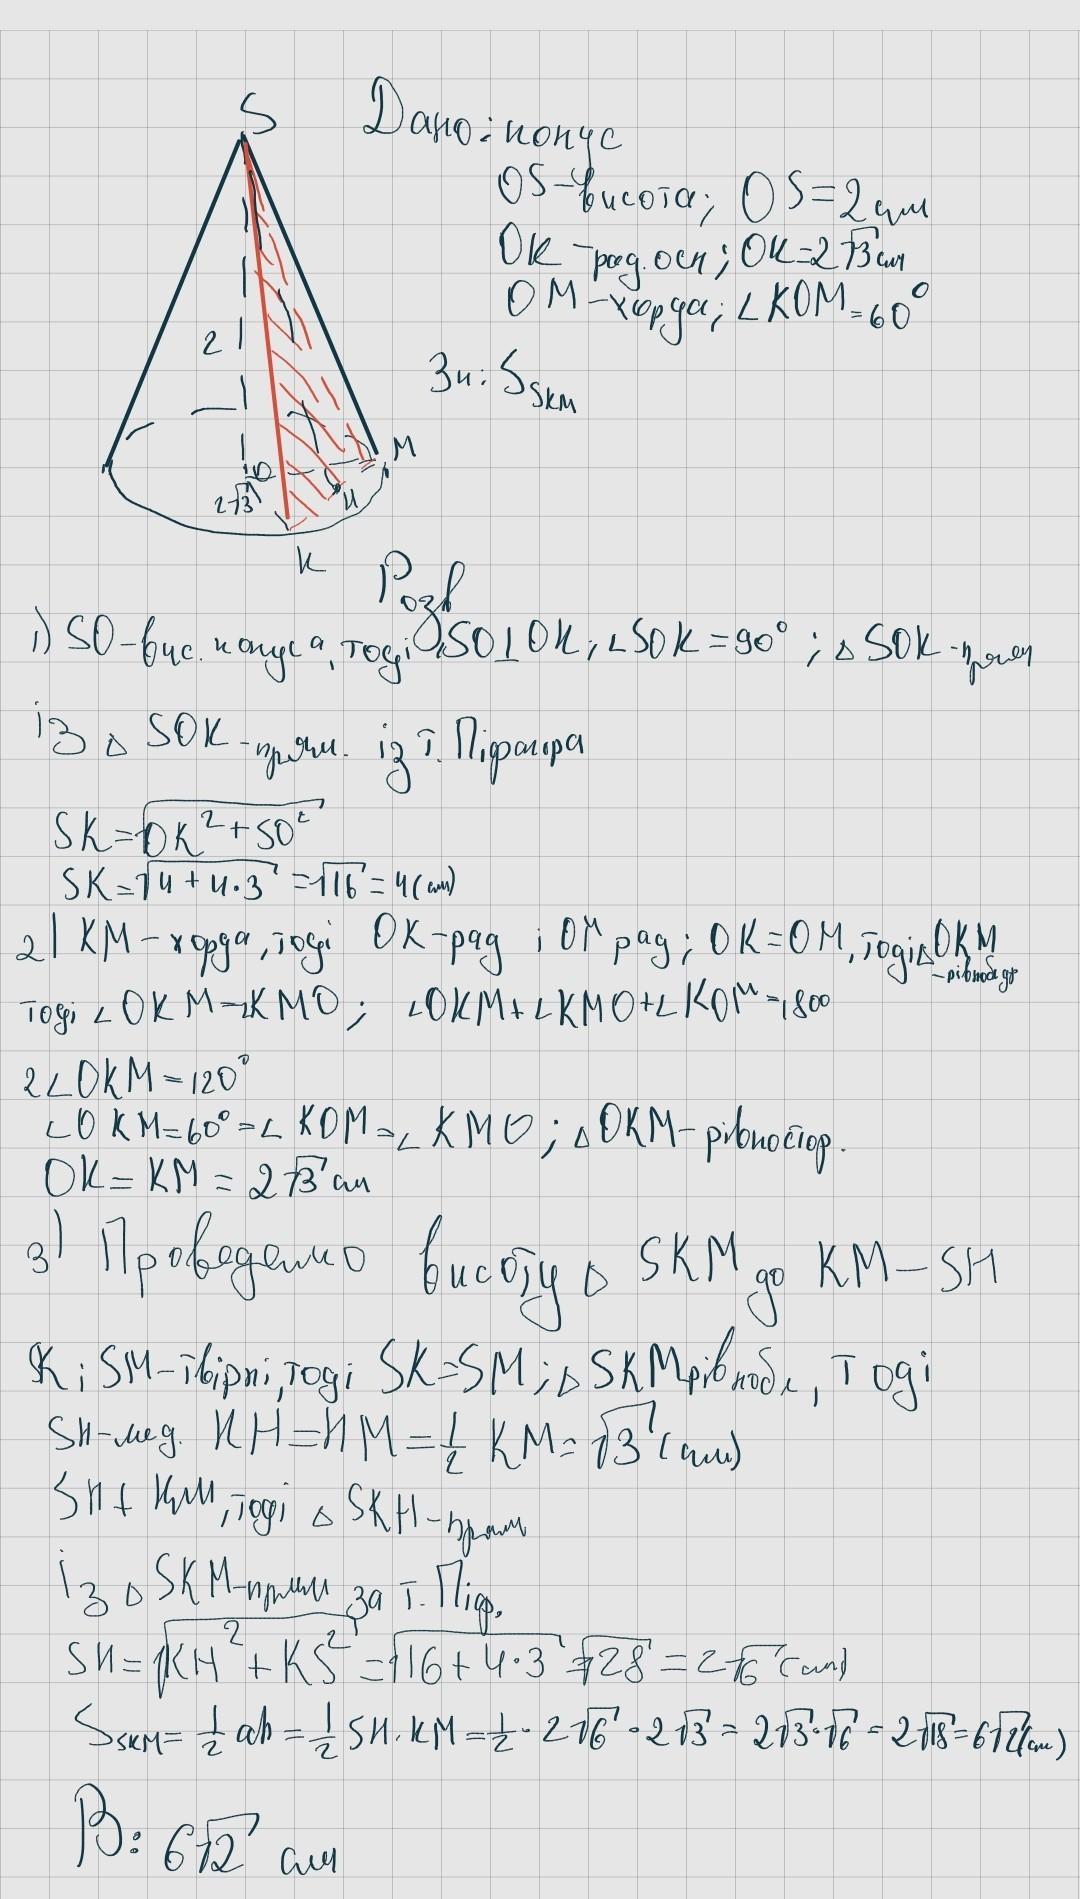 S
Дано: конус
OS-висота; OS=2см
OK-рад. осн; OK=2√3см
OM-хорда; ∠KOM=60°
Зн: S SKM
2
O
M
2√3
H
K
Розв
1) SO-вис. конуса, тоді SO⊥OK; ∠SOK=90°; △SOK-прям
із △SOK-прям. із т. Піфагора
SK=√OK²+SO²
SK=√4+4·3=√16=4(см)
2) KM-хорда, тоді OK-рад і OM рад; OK=OM, тоді △OKM
-рівнобедр
тоді ∠OKM=∠KMO; ∠OKM+∠KMO+∠KOM=1800
2∠OKM=120°
∠OKM=60°=∠KOM=∠KMO; △OKM-рівностор.
OK=KM=2√3см
3) Проведемо висоту △SKM до KM-SH
K і SM-твірні, тоді SK=SM; △SKM рівноб, тоді
SH-мед. KH=HM=½KM=√3(см)
SH⊥KM, тоді △SKH-прям
із △SKM-прям за т. Піф.
SH=√KH²+KS²=√16+4·3=√28=2√6(см)
S SKM=½ah=½SH·KM=½·2√6·2√3=2√3·√6=2√18=6√2(см)
В: 6√2 см